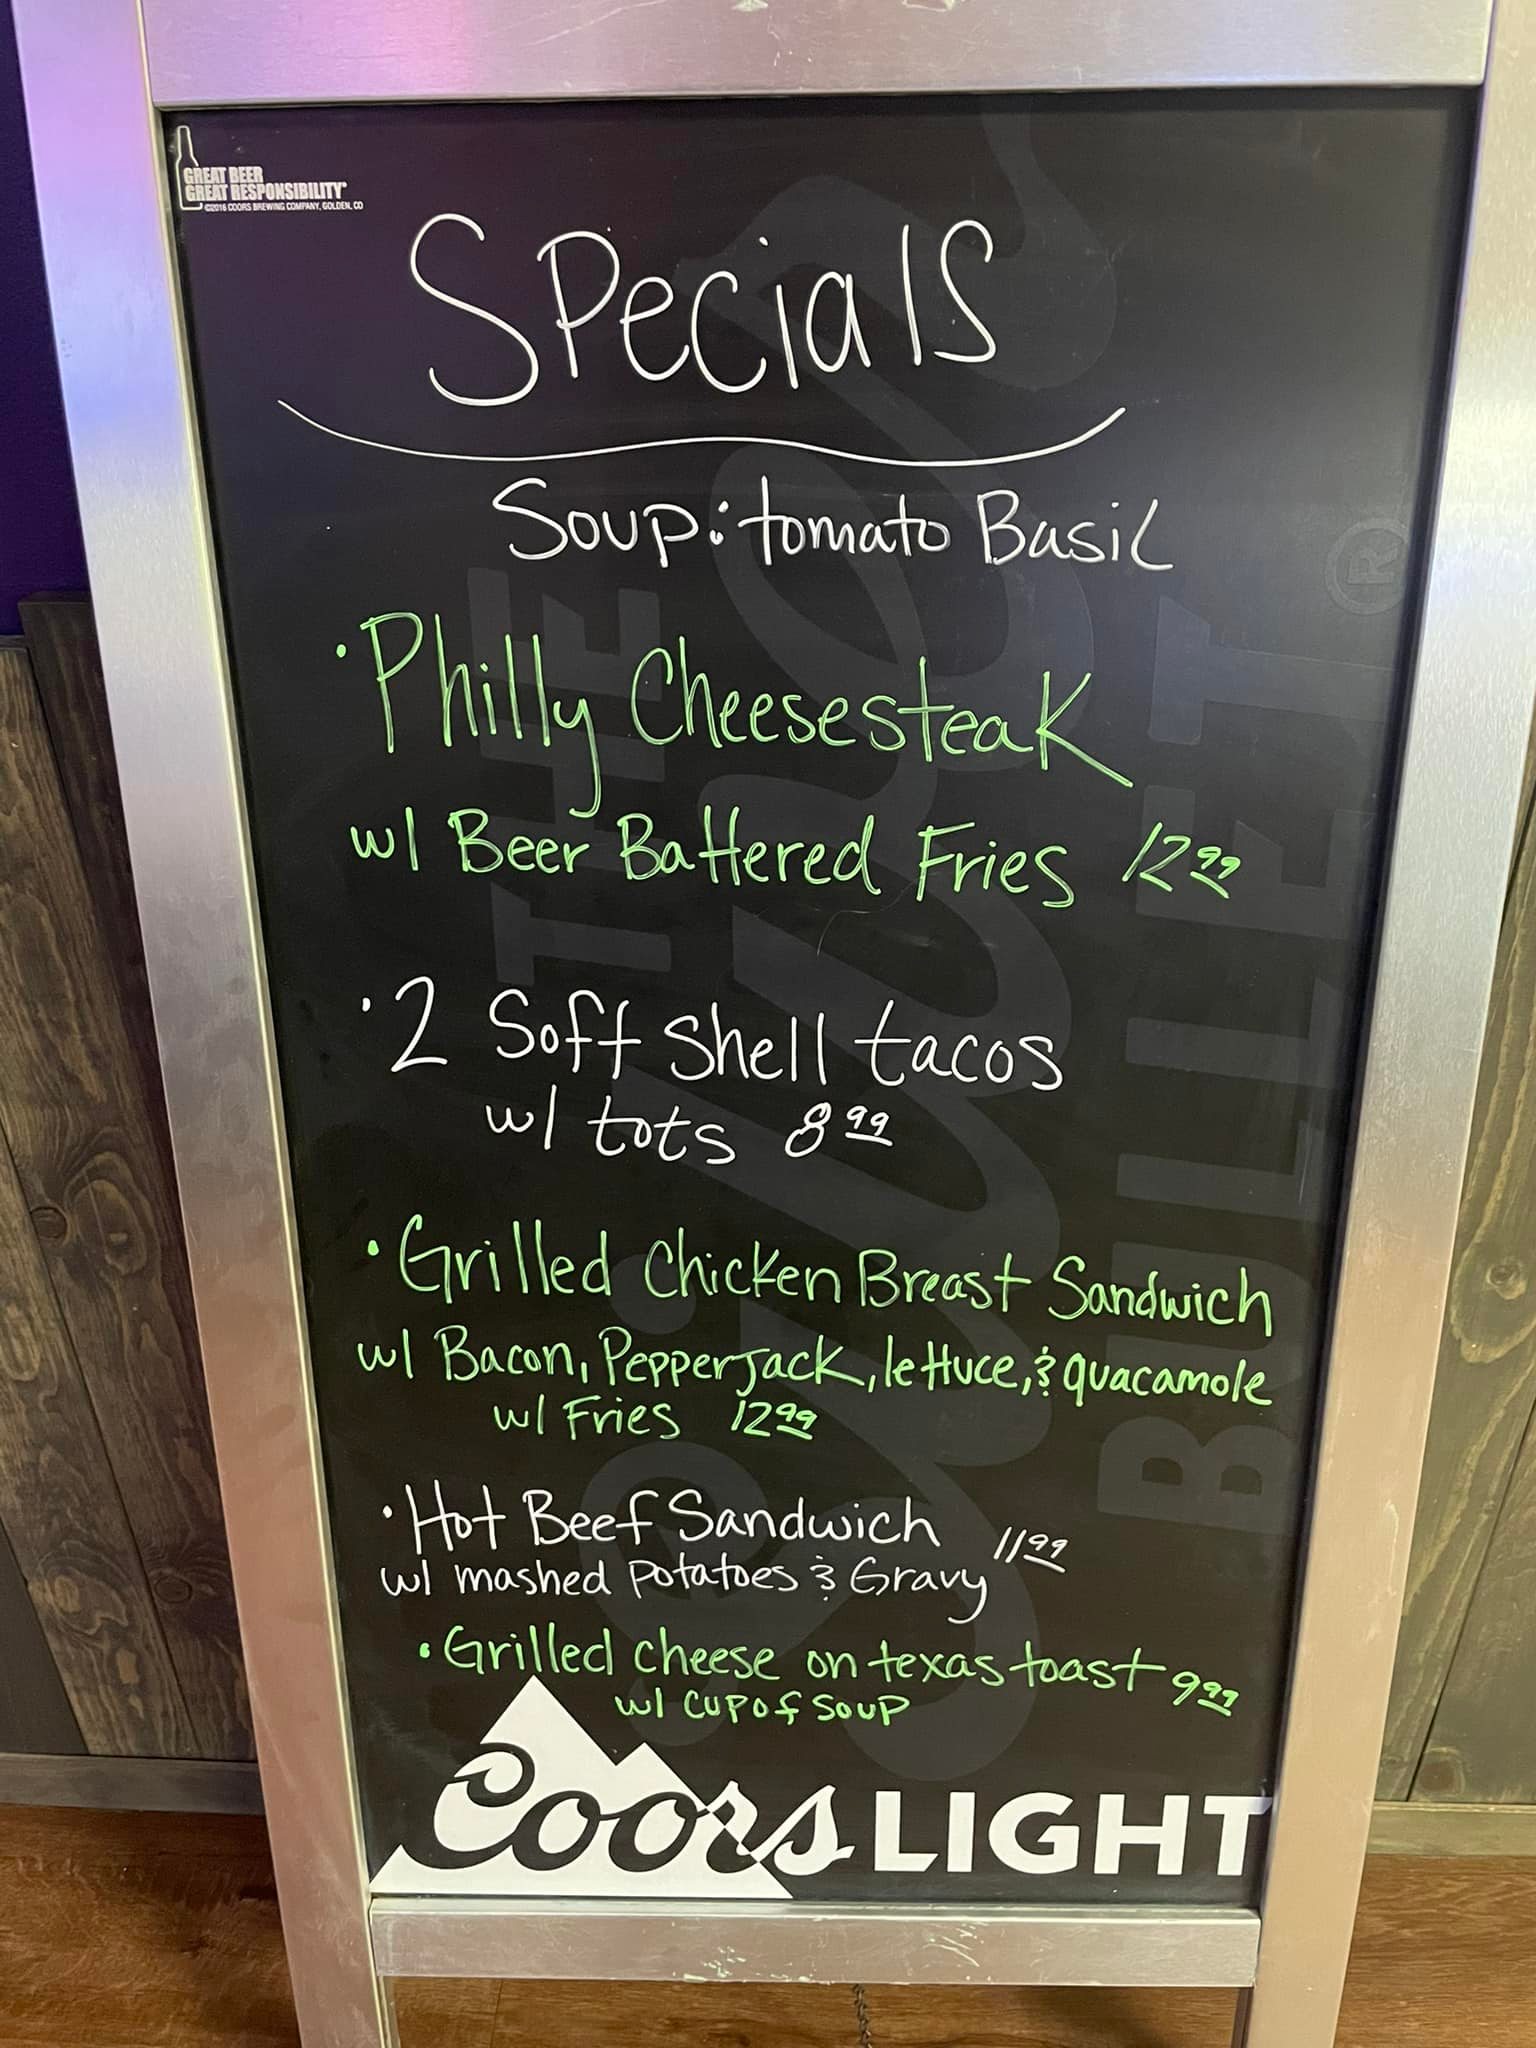 GREAT BEER
GREAT RESPONSIBILITY®
©2016 COORS BREWING COMPANY, GOLDEN, CO
Specials
Soup: tomato Basil
• Philly Cheesesteak
w/ Beer Battered Fries 12.99
• 2 Soft Shell tacos
w/ tots 8.99
• Grilled Chicken Breast Sandwich
w/ Bacon, Pepperjack, lettuce, & guacamole
w/ Fries 12.99
• Hot Beef Sandwich 11.99
w/ mashed potatoes & Gravy
• Grilled cheese on texas toast 9.99
w/ cup of soup
Coors LIGHT
THE
Silver
BULLET®